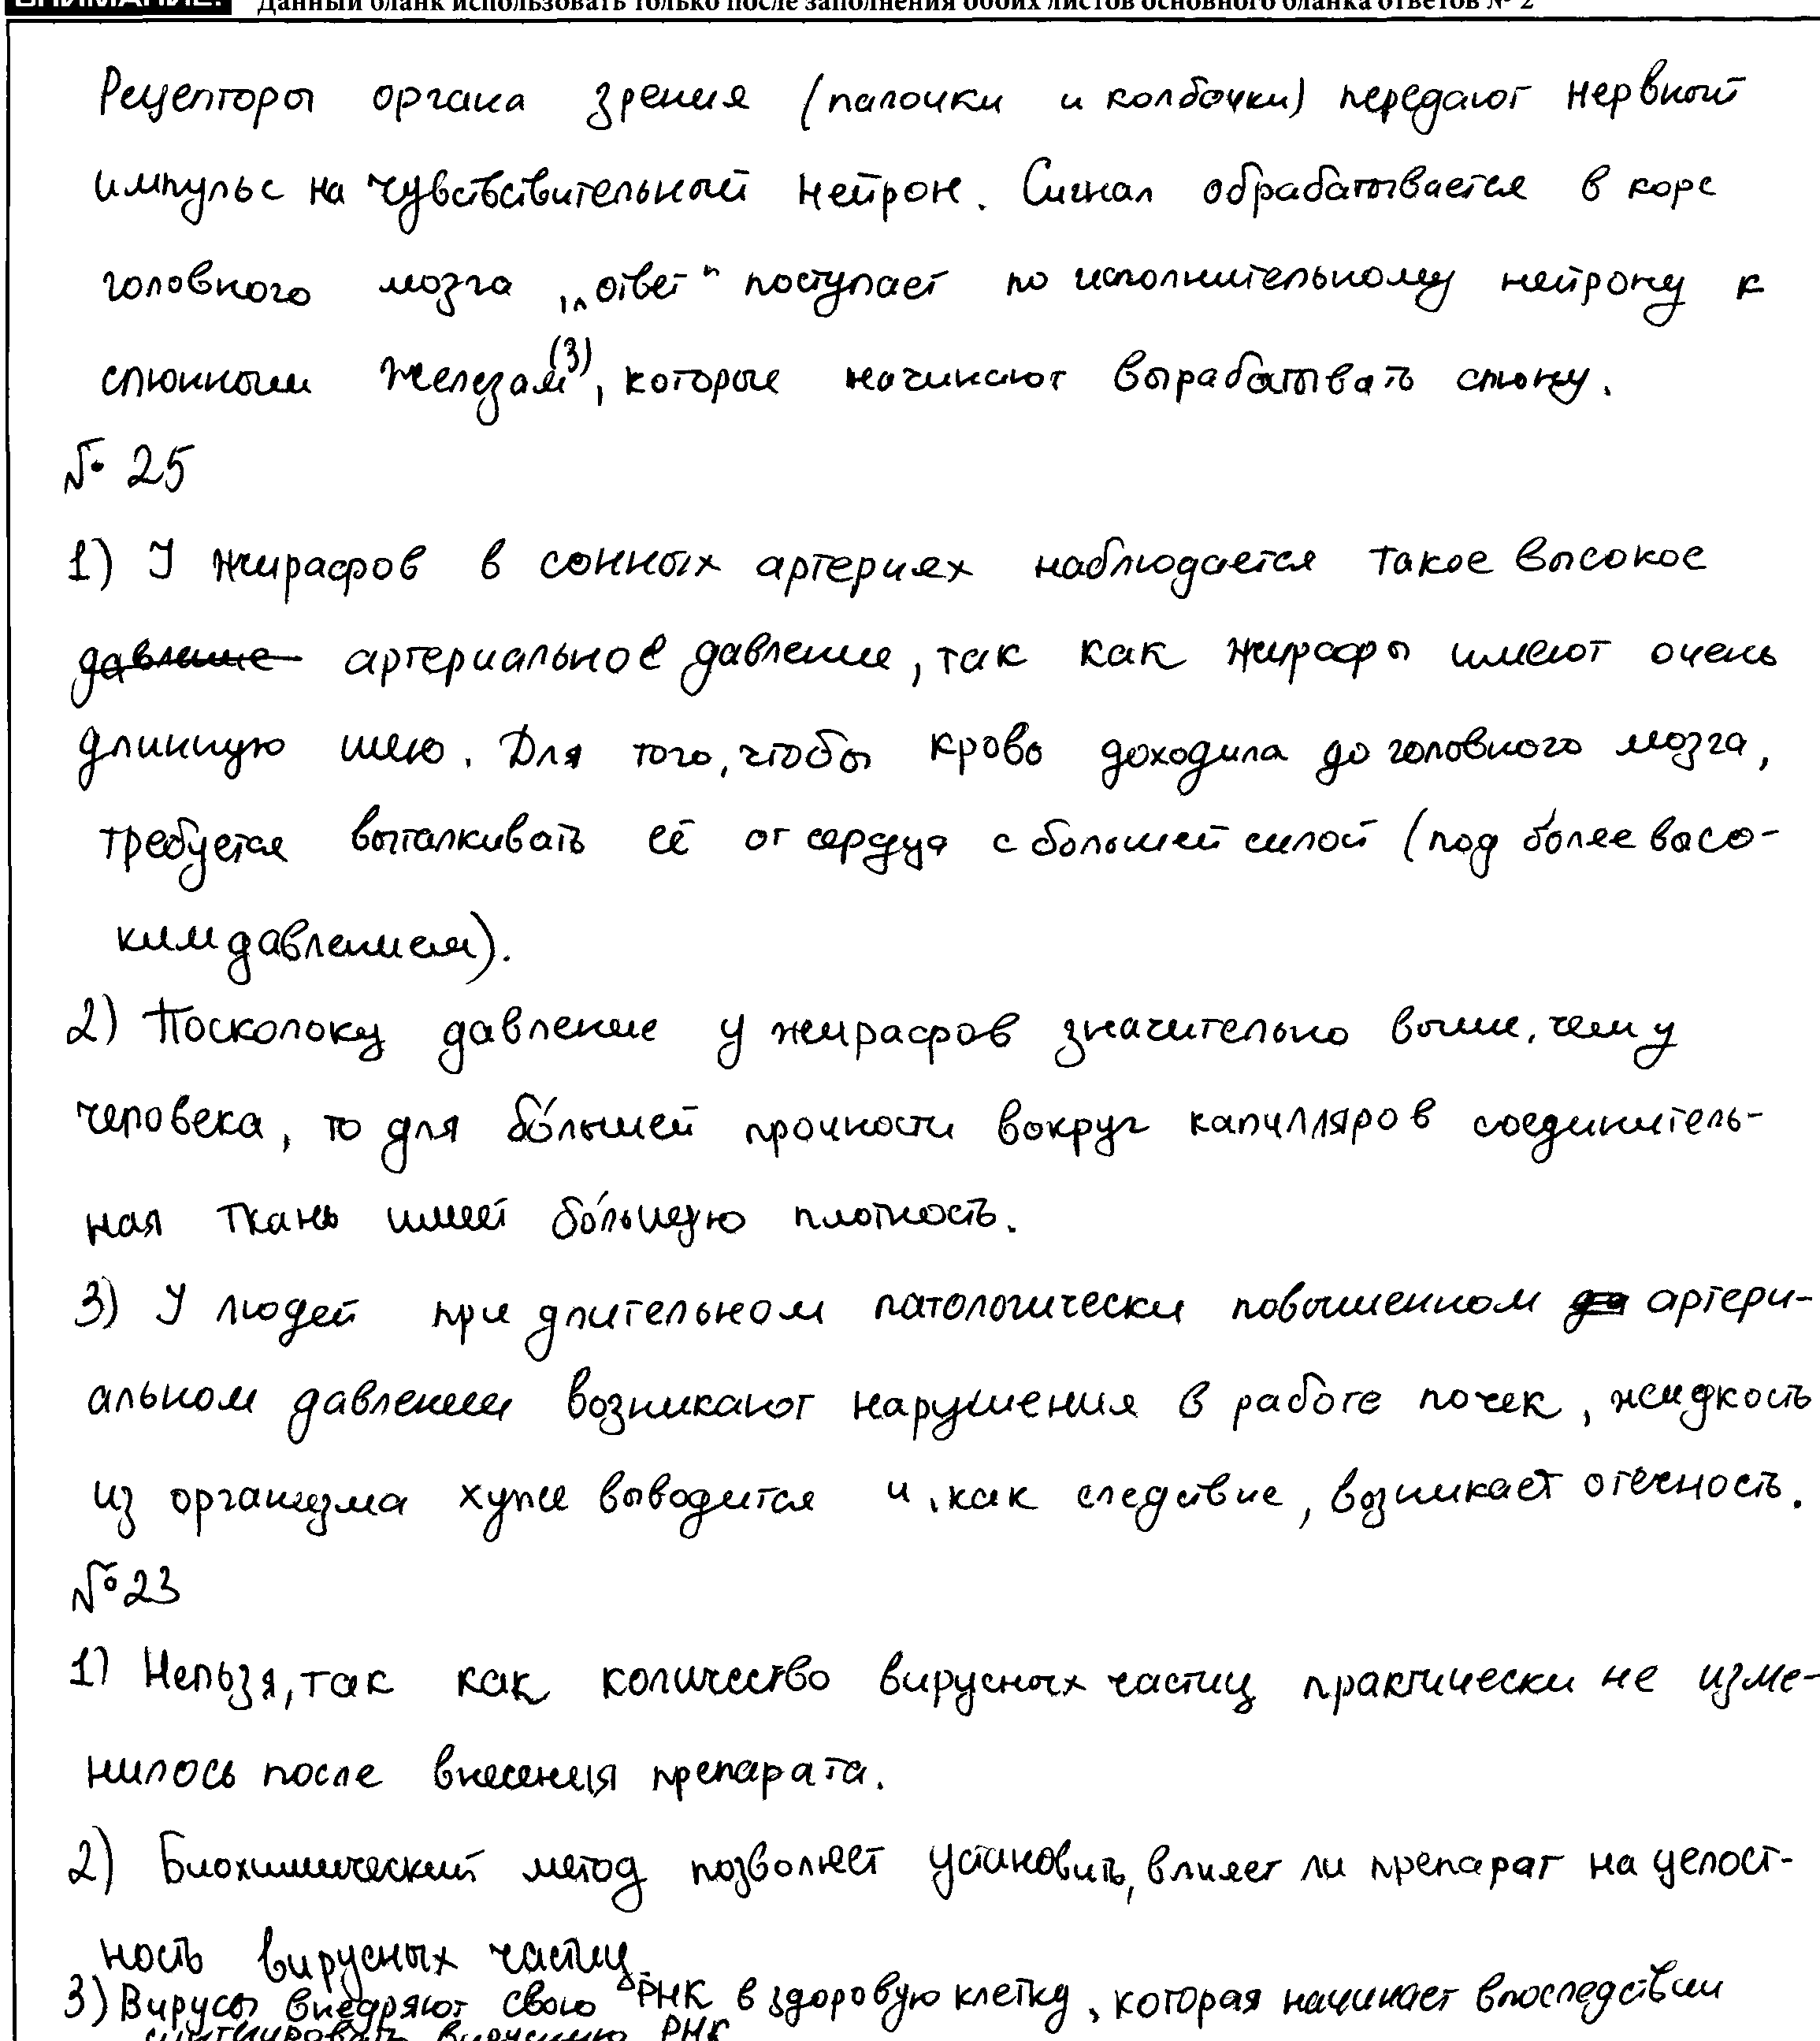 ВНИМАНИЕ! Данный бланк использовать только после заполнения обоих листов основного бланка ответов № 2
Рецепторы органа зрения (палочки и колбочки) передают нервный
импульс на чувствствительный нейрон. Сигнал обрабатывается в коре
головного мозга, „ответ" поступает по исполнительному нейрону к
слюнным железам(3), которые начинают вырабатывать слюну.
№ 25
1) У жирафов в сонных артериях наблюдается такое высокое
давление артериальное давление, так как жирафы имеют очень
длинную шею. Для того, чтобы кровь доходила до головного мозга,
требуется выталкивать её от сердца с большей силой (под более высо-
ким давлением).
2) Поскольку давление у жирафов значительно выше, чем у
человека, то для бо́льшей прочности вокруг капилляров соединитель-
ная ткань имеет бо́льшую плотность.
3) У людей при длительном патологически повышенном да артери-
альном давлении возникают нарушения в работе почек, жидкость
из организма хуже выводится и, как следствие, возникает отёчность.
№ 23
1) Нельзя, так как количество вирусных частиц практически не изме-
нилось после внесения препарата.
2) Биохимический метод позволяет установить, влияет ли препарат на целост-
ность вирусных частиц.
3) Вирусы внедряют свою РНК в здоровую клетку, которая начинает впоследствии
синтезировать вирусную РНК